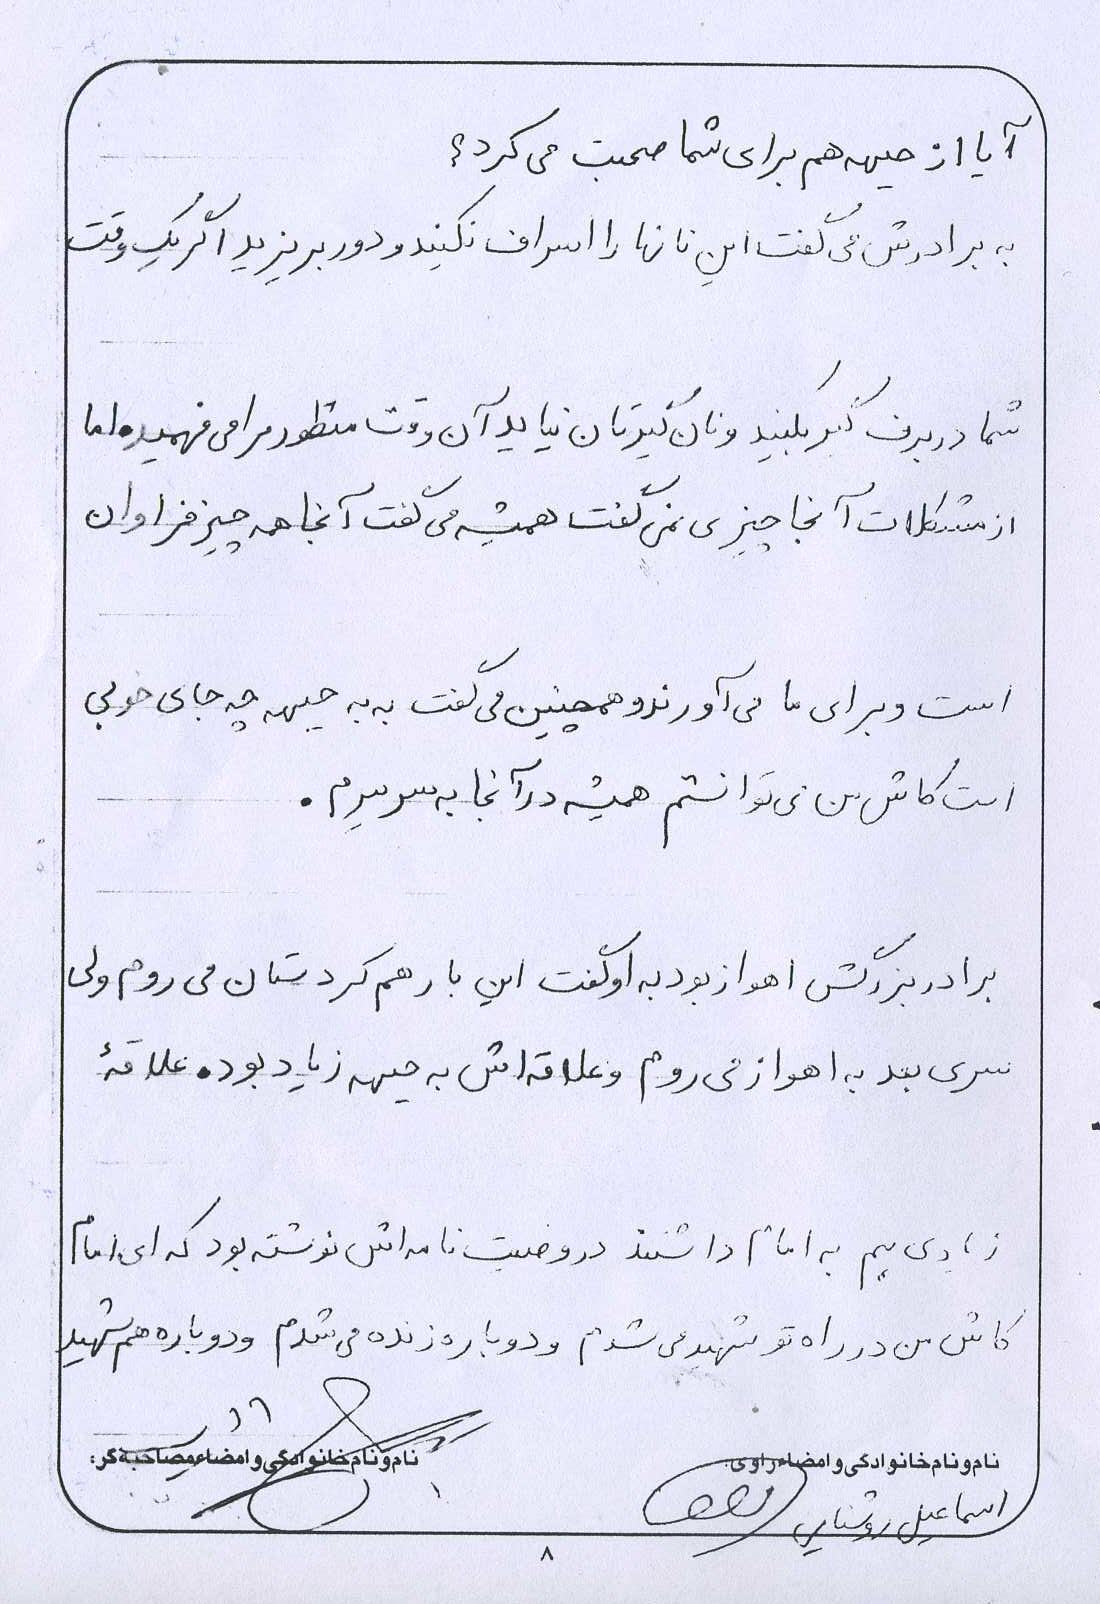 آیا از جبهه هم برای شما صحبت می کرد؟
به برادرش می گفت این نانها را اسراف نکنید و دور بریزید اگر یک وقت
شما در برف گیر بکنید و نان گیرتان نیاید آن وقت منظور مرا می فهمید. اما
از مشکلات آنجا چیزی نمی گفت همیشه می گفت آنجا همه چیز فراوان
است و برای ما می آورند و همچنین می گفت به به جبهه چه جای خوبی
است کاش من می توانستم همیشه در آنجا به سر ببرم.
برادر بزرگش اهواز بود به او گفت این بار هم کردستان می روم ولی
سری بعد به اهواز می روم و علاقه اش به جبهه زیاد بود. علاقهٔ
زیادی هم به امام داشتند در وصیت نامه اش نوشته بود که ای امام
کاش من در راه تو شهید می شدم و دوباره زنده می شدم و دوباره هم شهید
نام و نام خانوادگی و امضاء راوی:
نام و نام خانوادگی و امضاء مصاحبه گر:
اسماعیل روشنایی
۸